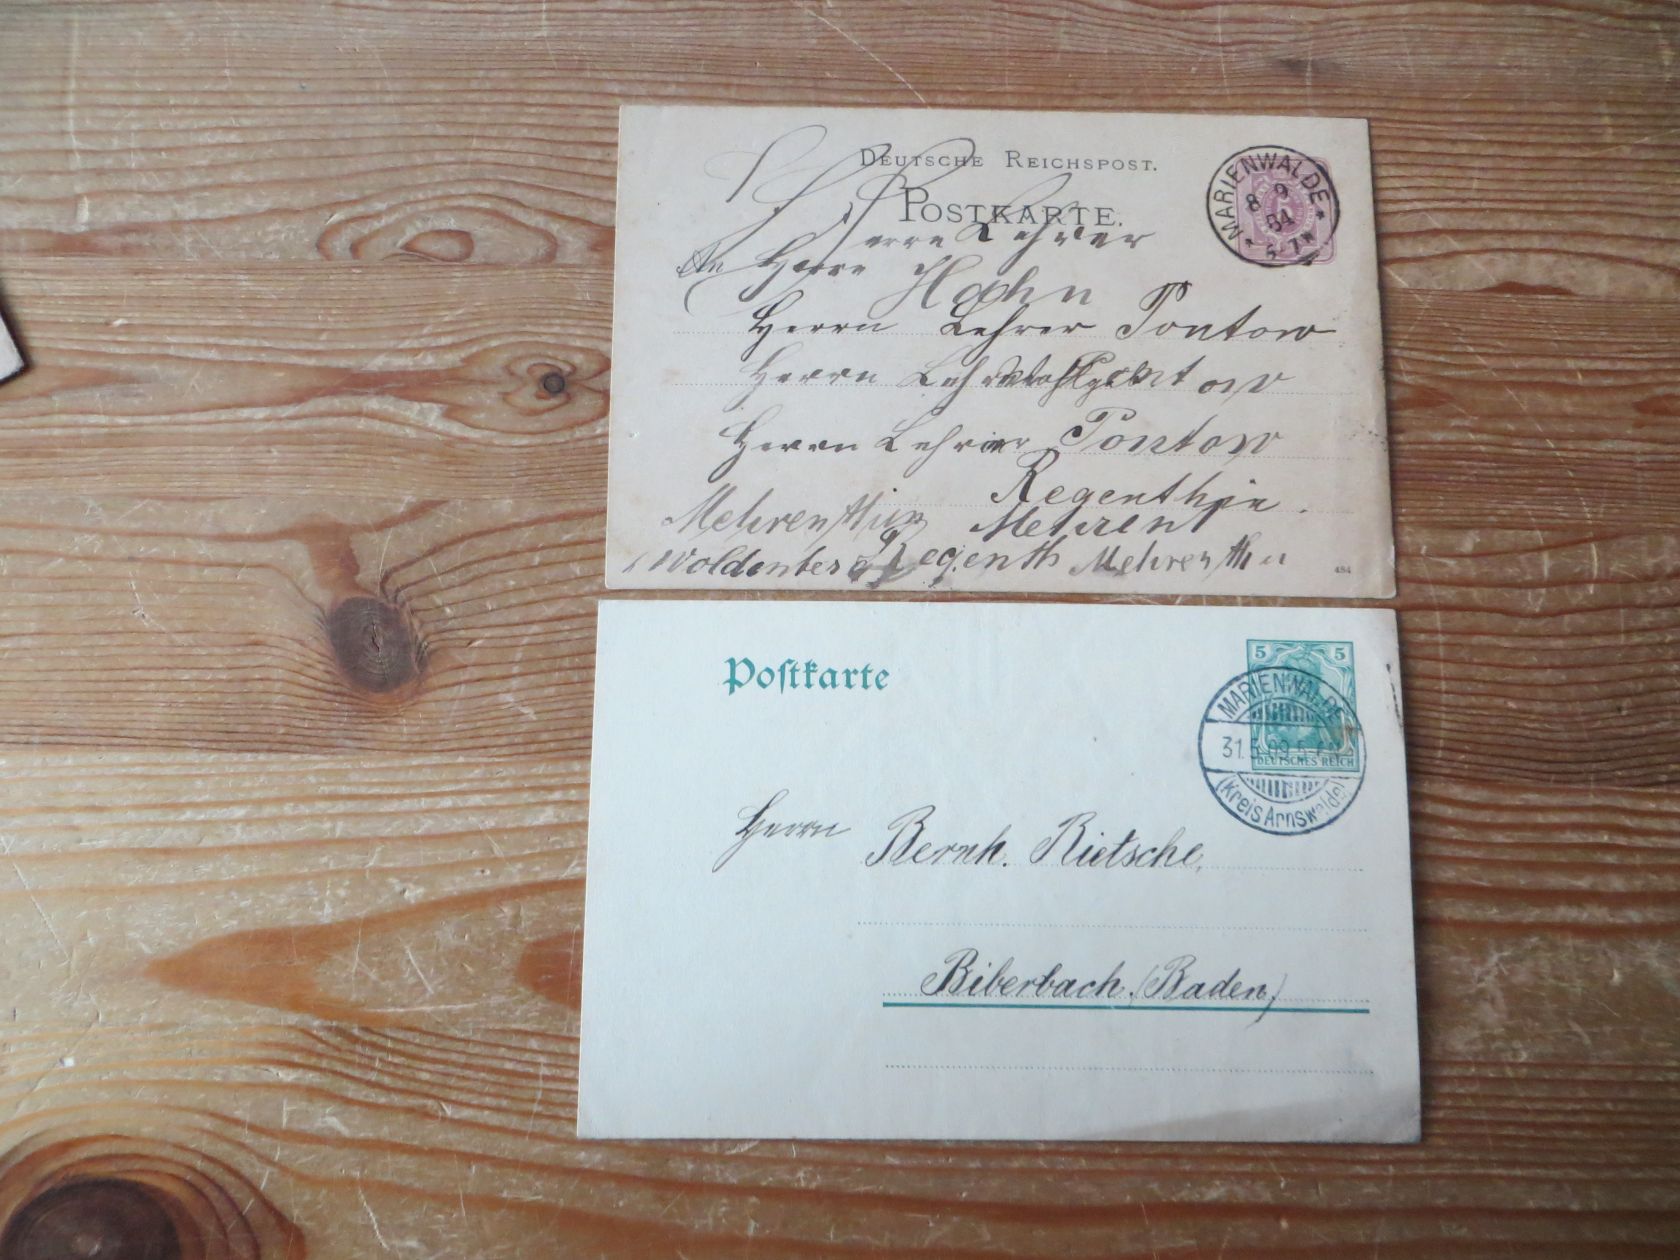 DEUTSCHE REICHSPOST.
POSTKARTE.
MARIENWALDE
8 9
84
5-7N
Herrn Lehrer
An Herrn Hahn
Herrn Lehrer Pontow
Herrn Pontow
Herrn Lehrer Pontow
Regenthin.
Mehrenthin Mehrent
Regenth Mehrenthin
484
Postkarte
5 5
DEUTSCHES REICH
MARIENWALDE
31.5.09.5-6N
(Kreis Arnswalde)
Herrn Bernh. Rietsche,
Biberbach (Baden)